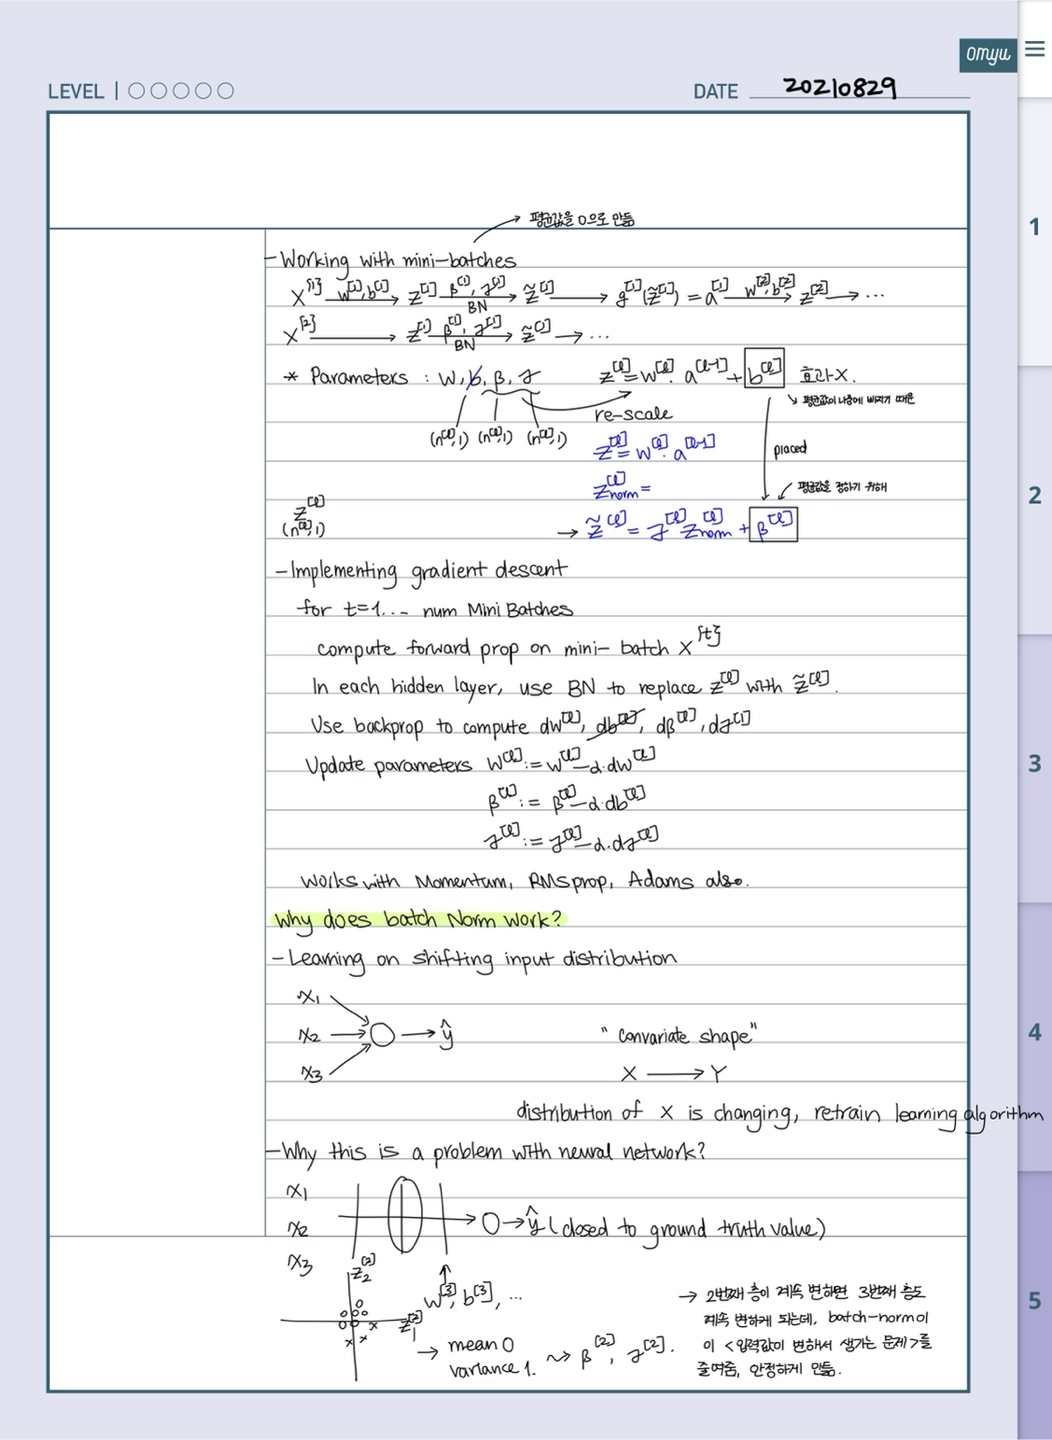 omyu
LEVEL | ○○○○○
DATE 20210829
1
2
3
4
5
→ 평균값을 0으로 만듦
-Working with mini-batches
X^{1} →(w^[1], b^[1]) z^[1] →(β^[1], γ^[1] BN) z̃^[1] → g^[1](z̃^[1]) = a^[1] →(w^[2], b^[2]) z^[2] → ...
X^{2} → z^[1] →(β^[1], γ^[1] BN) z̃^[1] → ...
* Parameters : W, b, β, γ
z^[l] = w^[l]. a^[l-1] + b^[l] 효과X.
↘ 평균값이 나중에 빠지기 때문
re-scale
(n^[l],1) (n^[l],1) (n^[l],1)
z^[l] = w^[l]. a^[l-1]
placed
z^[l]norm =
평균값을 정하기 위해
z^[l]
(n^[l],1)
→ z̃^[l] = γ^[l] z^[l]norm + β^[l]
-Implementing gradient descent
for t=1... num Mini Batches
compute forward prop on mini-batch X^{t}
In each hidden layer, use BN to replace z^[l] with z̃^[l].
Use backprop to compute dw^[l], db^[l], dβ^[l], dγ^[l]
Update parameters w^[l] := w^[l] - α.dw^[l]
β^[l] := β^[l] - α.db^[l]
γ^[l] := γ^[l] - α.dγ^[l]
Works with Momentum, RMSprop, Adams also.
Why does batch Norm work?
-Learning on shifting input distribution
x1
x2 → ○ → ŷ
x3
"convariate shape"
X → Y
distribution of X is changing, retrain learning algorithm
-Why this is a problem with neural network?
x1
x2
x3
○→ŷ (closed to ground truth value)
z2^[2]
z1^[2]
w^[3], b^[3], ...
→ mean 0
variance 1. ⇝ β^[2], γ^[2].
→ 2번째 층이 계속 변하면 3번째 층도
계속 변하게 되는데, batch-norm이
이 <입력값이 변해서 생기는 문제>를
줄여줌, 안정하게 만듦.